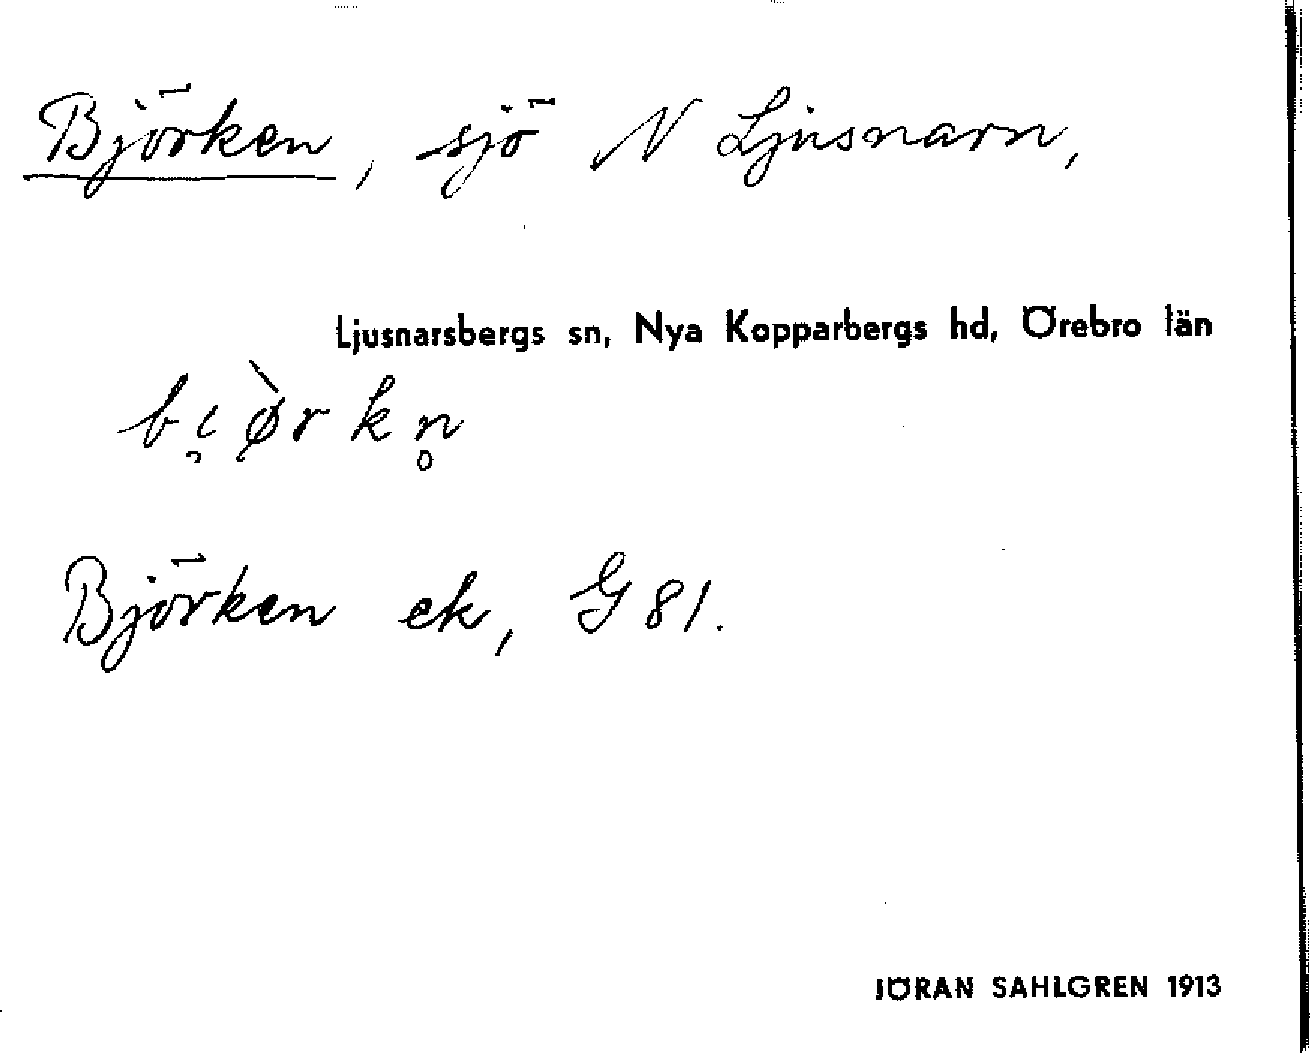 Björken, sjö N Ljusnarn,
Ljusnarsbergs sn, Nya Kopparbergs hd, Örebro län
bi̯ø̀rkn̥
Björken ek, G 81.
JÖRAN SAHLGREN 1913